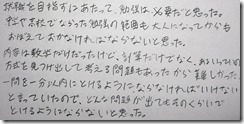 教職を目指すにあたって、勉強は必要だと思った。
中学や高校でならった勉強の範囲も大人になってからも
おぼえておかなければならないと思った。
内容は数学だけだったけど、計算だけでなく、おもいついの
方式を見つけ出して考える問題もあったから難しかった
一問を一分以内にとけるようにならなければいけない
と言っていたので、どんな問題が出てもそのくらいで
とけるようにならないと思った。